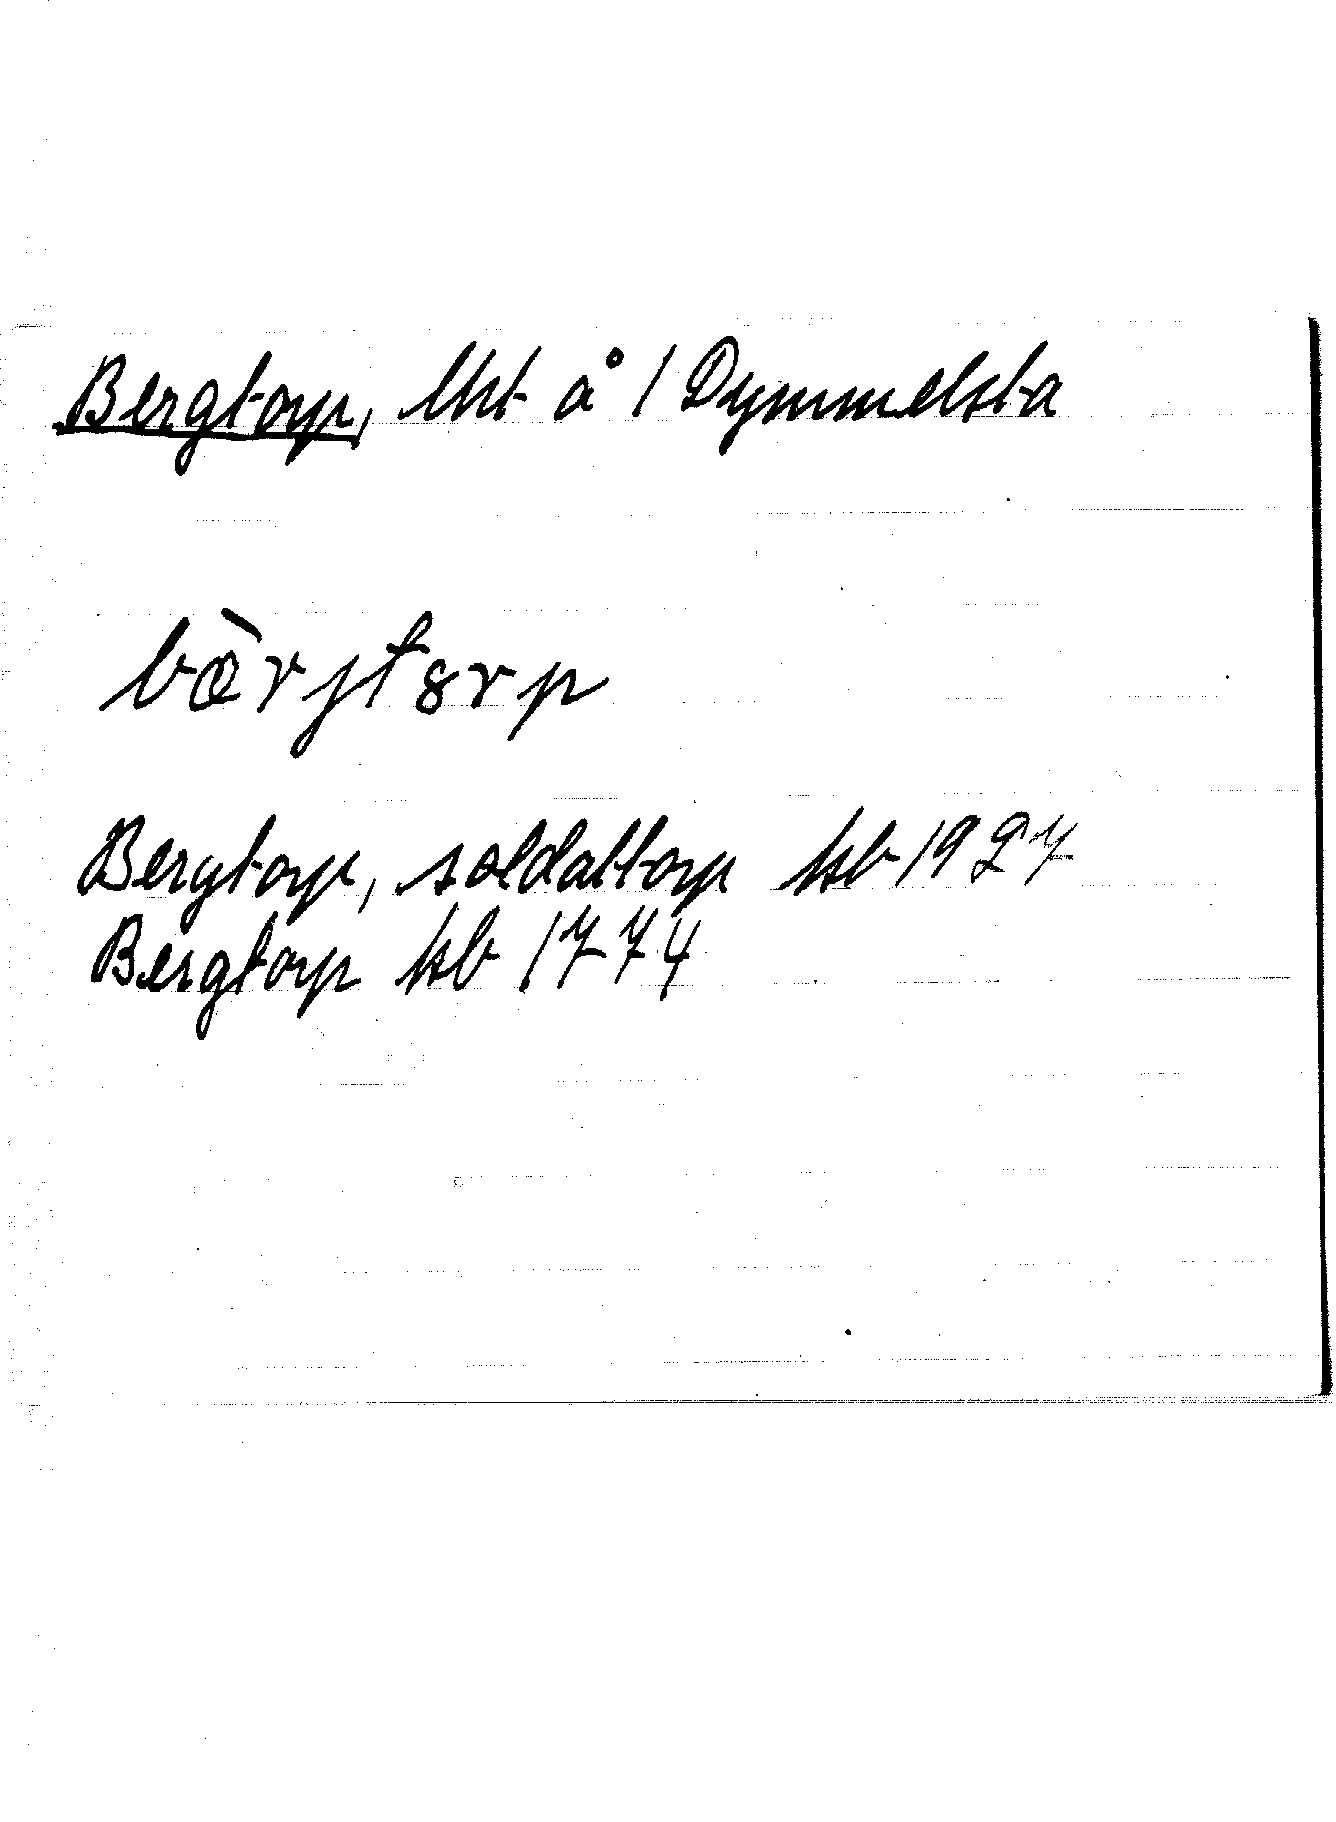 Bergtorp, lht å 1 Dymmelsta
bæ̀rjtȣrp
Bergtorp, soldattorp kb 1927
Bergtorp kb 1774